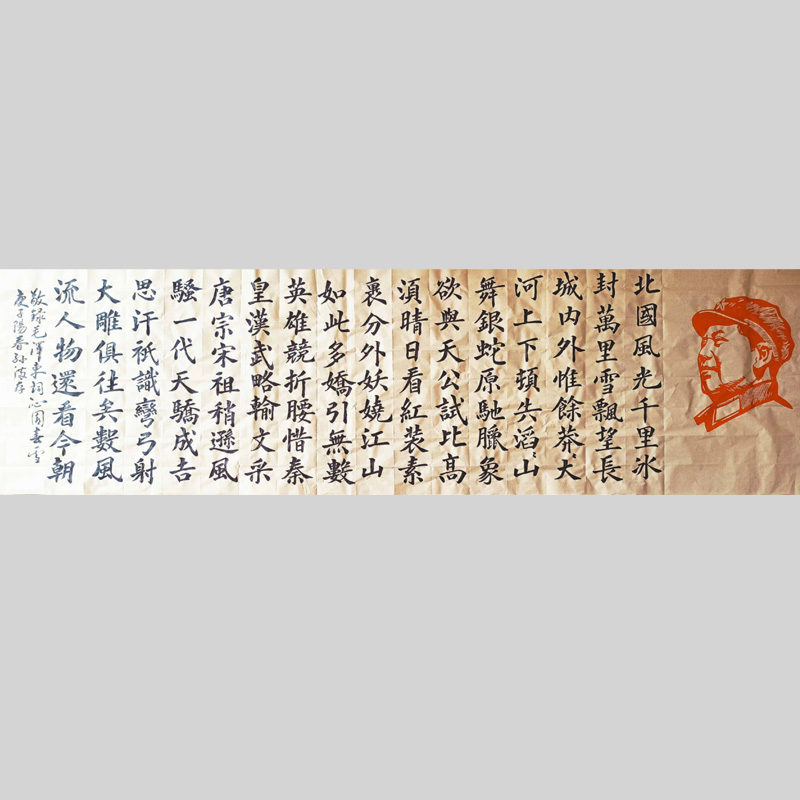 北國風光千里冰
封萬里雪飄望長
城内外惟餘莽〻大
河上下頓失滔〻山
舞銀蛇原馳臘象
欲與天公試比髙
須晴日看紅装素
裹分外妖嬈江山
如此多嬌引無數
英雄競折腰惜秦
皇漢武略輸文采
唐宗宋祖稍遜風
騷一代天驕成吉
思汗祇識彎弓射
大雕俱往矣數風
流人物還看今朝
敬録毛澤東詞沁園春雪
庚子陽春孙波